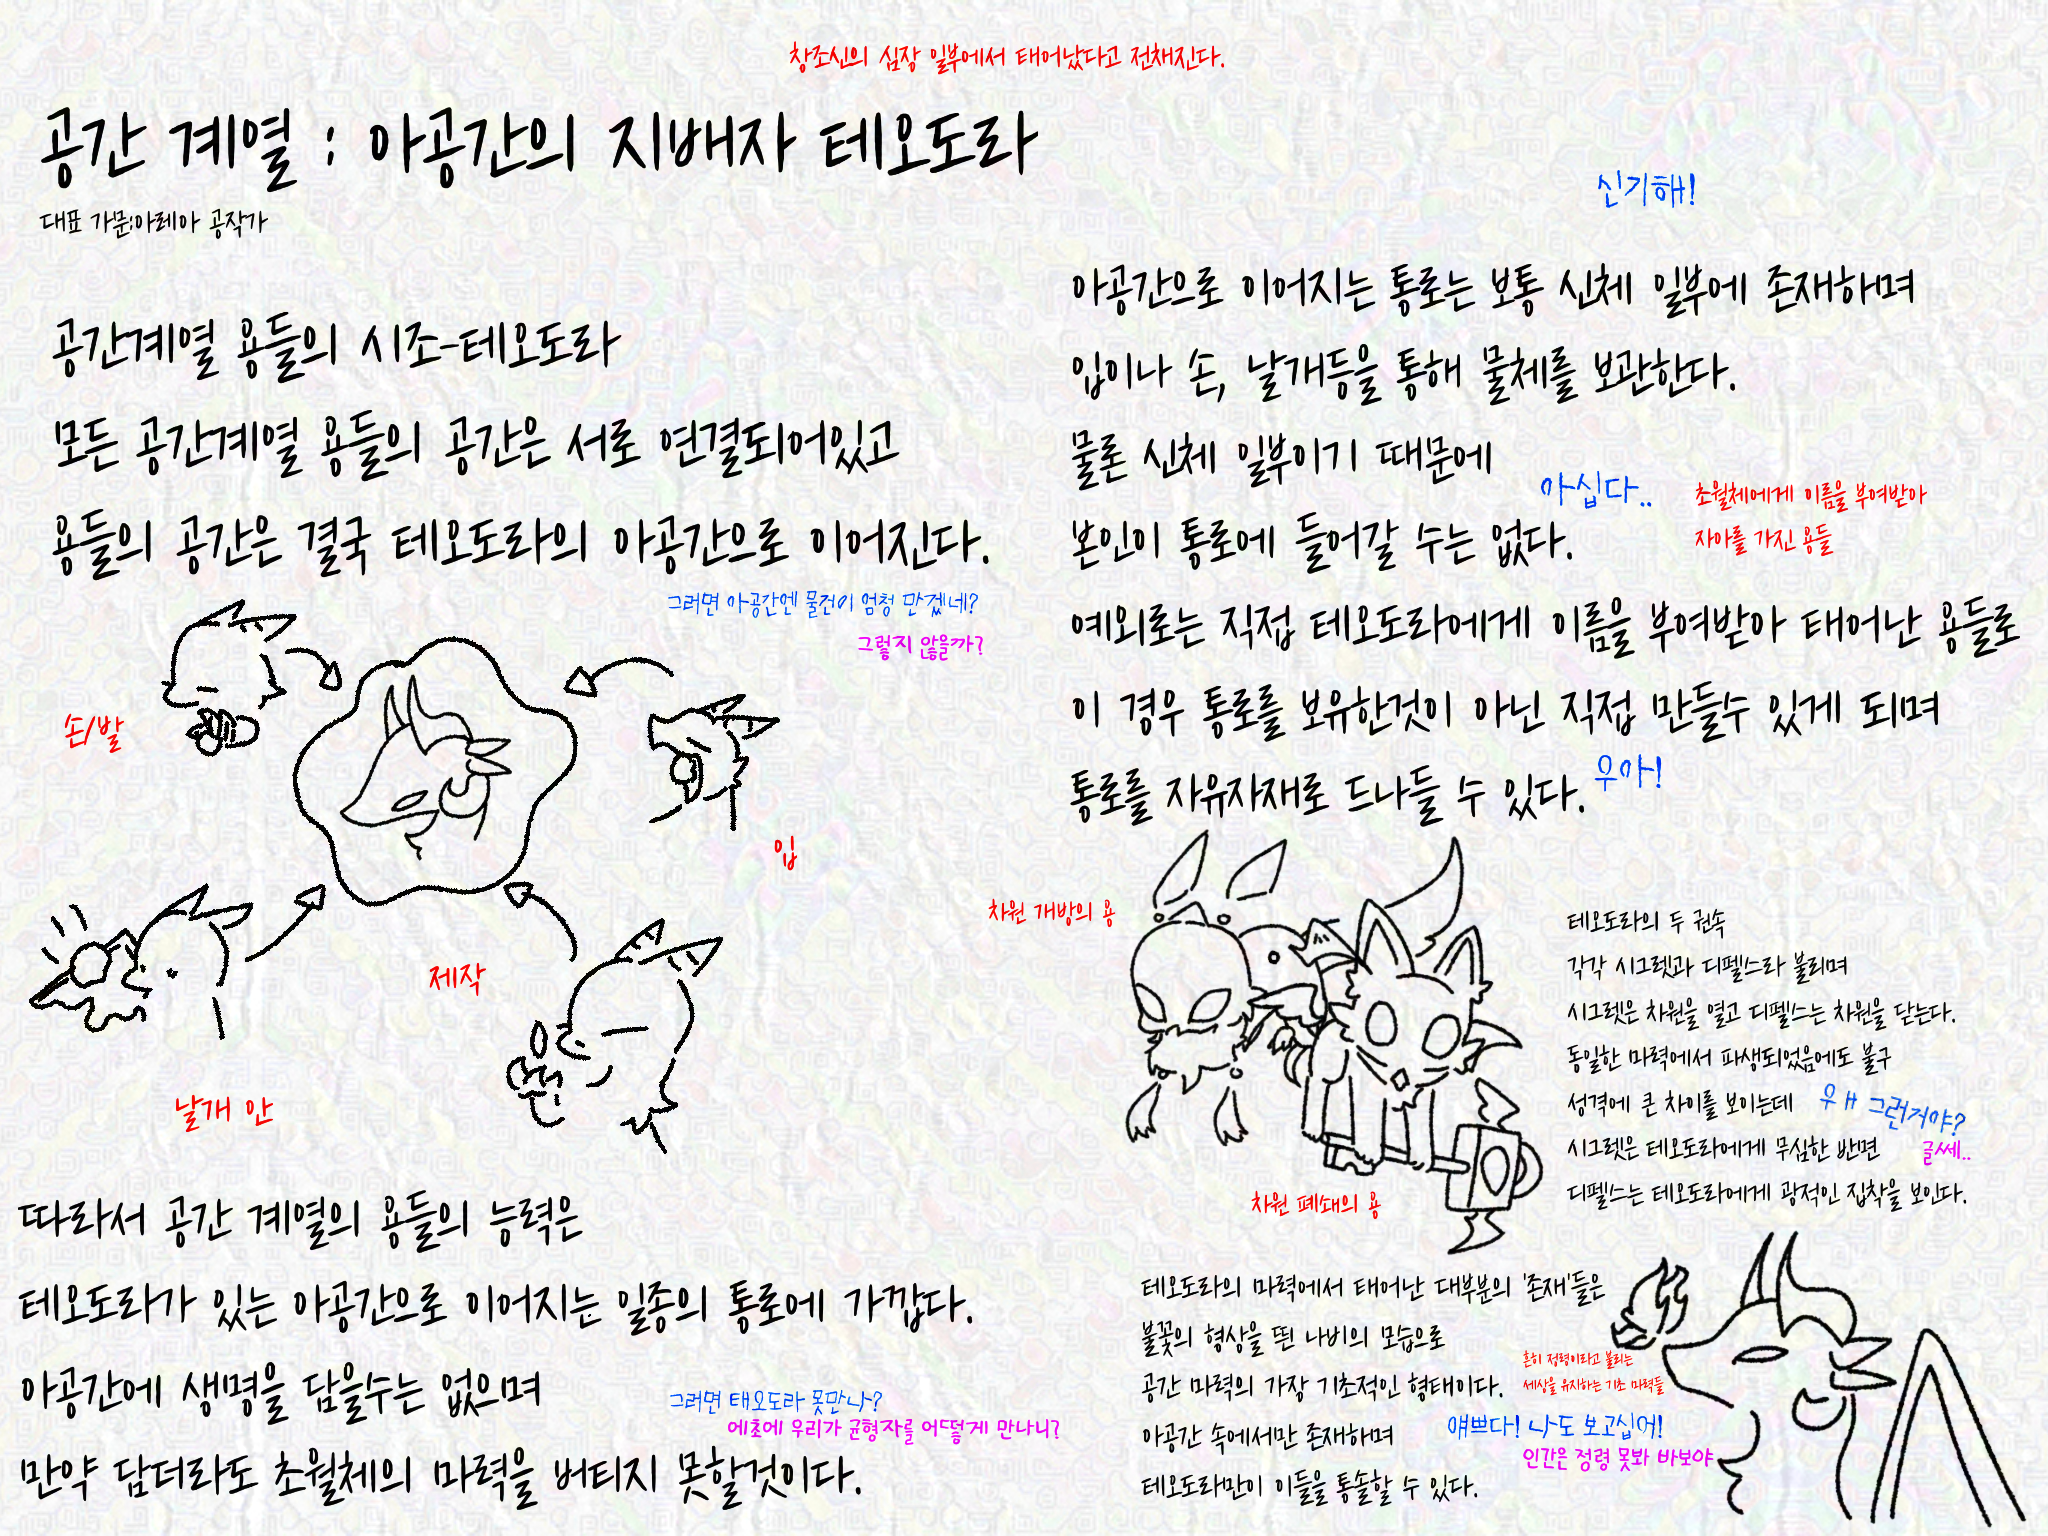 창조신의 심장 일부에서 태어났다고 전채진다.
공간 계열 : 아공간의 지배자 테오도라
대표 가문:아레아 공작가
공간계열 용들의 시조-테오도라
모든 공간계열 용들의 공간은 서로 연결되어있고
용들의 공간은 결국 테오도라의 아공간으로 이어진다.
그러면 아공간엔 물건이 엄청 만겠네?
그렇지 않을까?
손/발
입
날개 안
제작
따라서 공간 계열의 용들의 능력은
테오도라가 있는 아공간으로 이어지는 일종의 통로에 가깝다.
아공간에 생명을 담을수는 없으며
만약 담더라도 초월체의 마력을 버티지 못할것이다.
그러면 태오도라 못만나?
에초에 우리가 균형자를 어떻게 만나니?
신기해!
아공간으로 이어지는 통로는 보통 신체 일부에 존재하며
입이나 손, 날개등을 통해 물체를 보관한다.
물론 신체 일부이기 때문에
본인이 통로에 들어갈 수는 없다.
아십다..
초월체에게 이름을 부여받아
자아를 가진 용들
예외로는 직접 테오도라에게 이름을 부여받아 태어난 용들로
이 경우 통로를 보유한것이 아닌 직접 만들수 있게 되며
통로를 자유자재로 드나들 수 있다.
우아!
차원 개방의 용
차원 폐쇄의 용
테오도라의 두 권속
각각 시그렛과 디펠스라 불리며
시그렛은 차원을 열고 디펠스는 차원을 닫는다.
동일한 마력에서 파생되었음에도 불구
성격에 큰 차이를 보이는데
우ㅐ 그런거야?
시그렛은 테오도라에게 무심한 반면
글쎄..
디펠스는 테오도라에게 광적인 집착을 보인다.
테오도라의 마력에서 태어난 대부분의 '존재'들은
불꽃의 형상을 띈 나비의 모습으로
공간 마력의 가장 기초적인 형태이다.
흔히 정령이라고 불리는
세상을 유지하는 기초 마력들
아공간 속에서만 존재하며
테오도라만이 이들을 통솔할 수 있다.
얘쁘다! 나도 보고십어!
인간은 정령 못봐 바보야